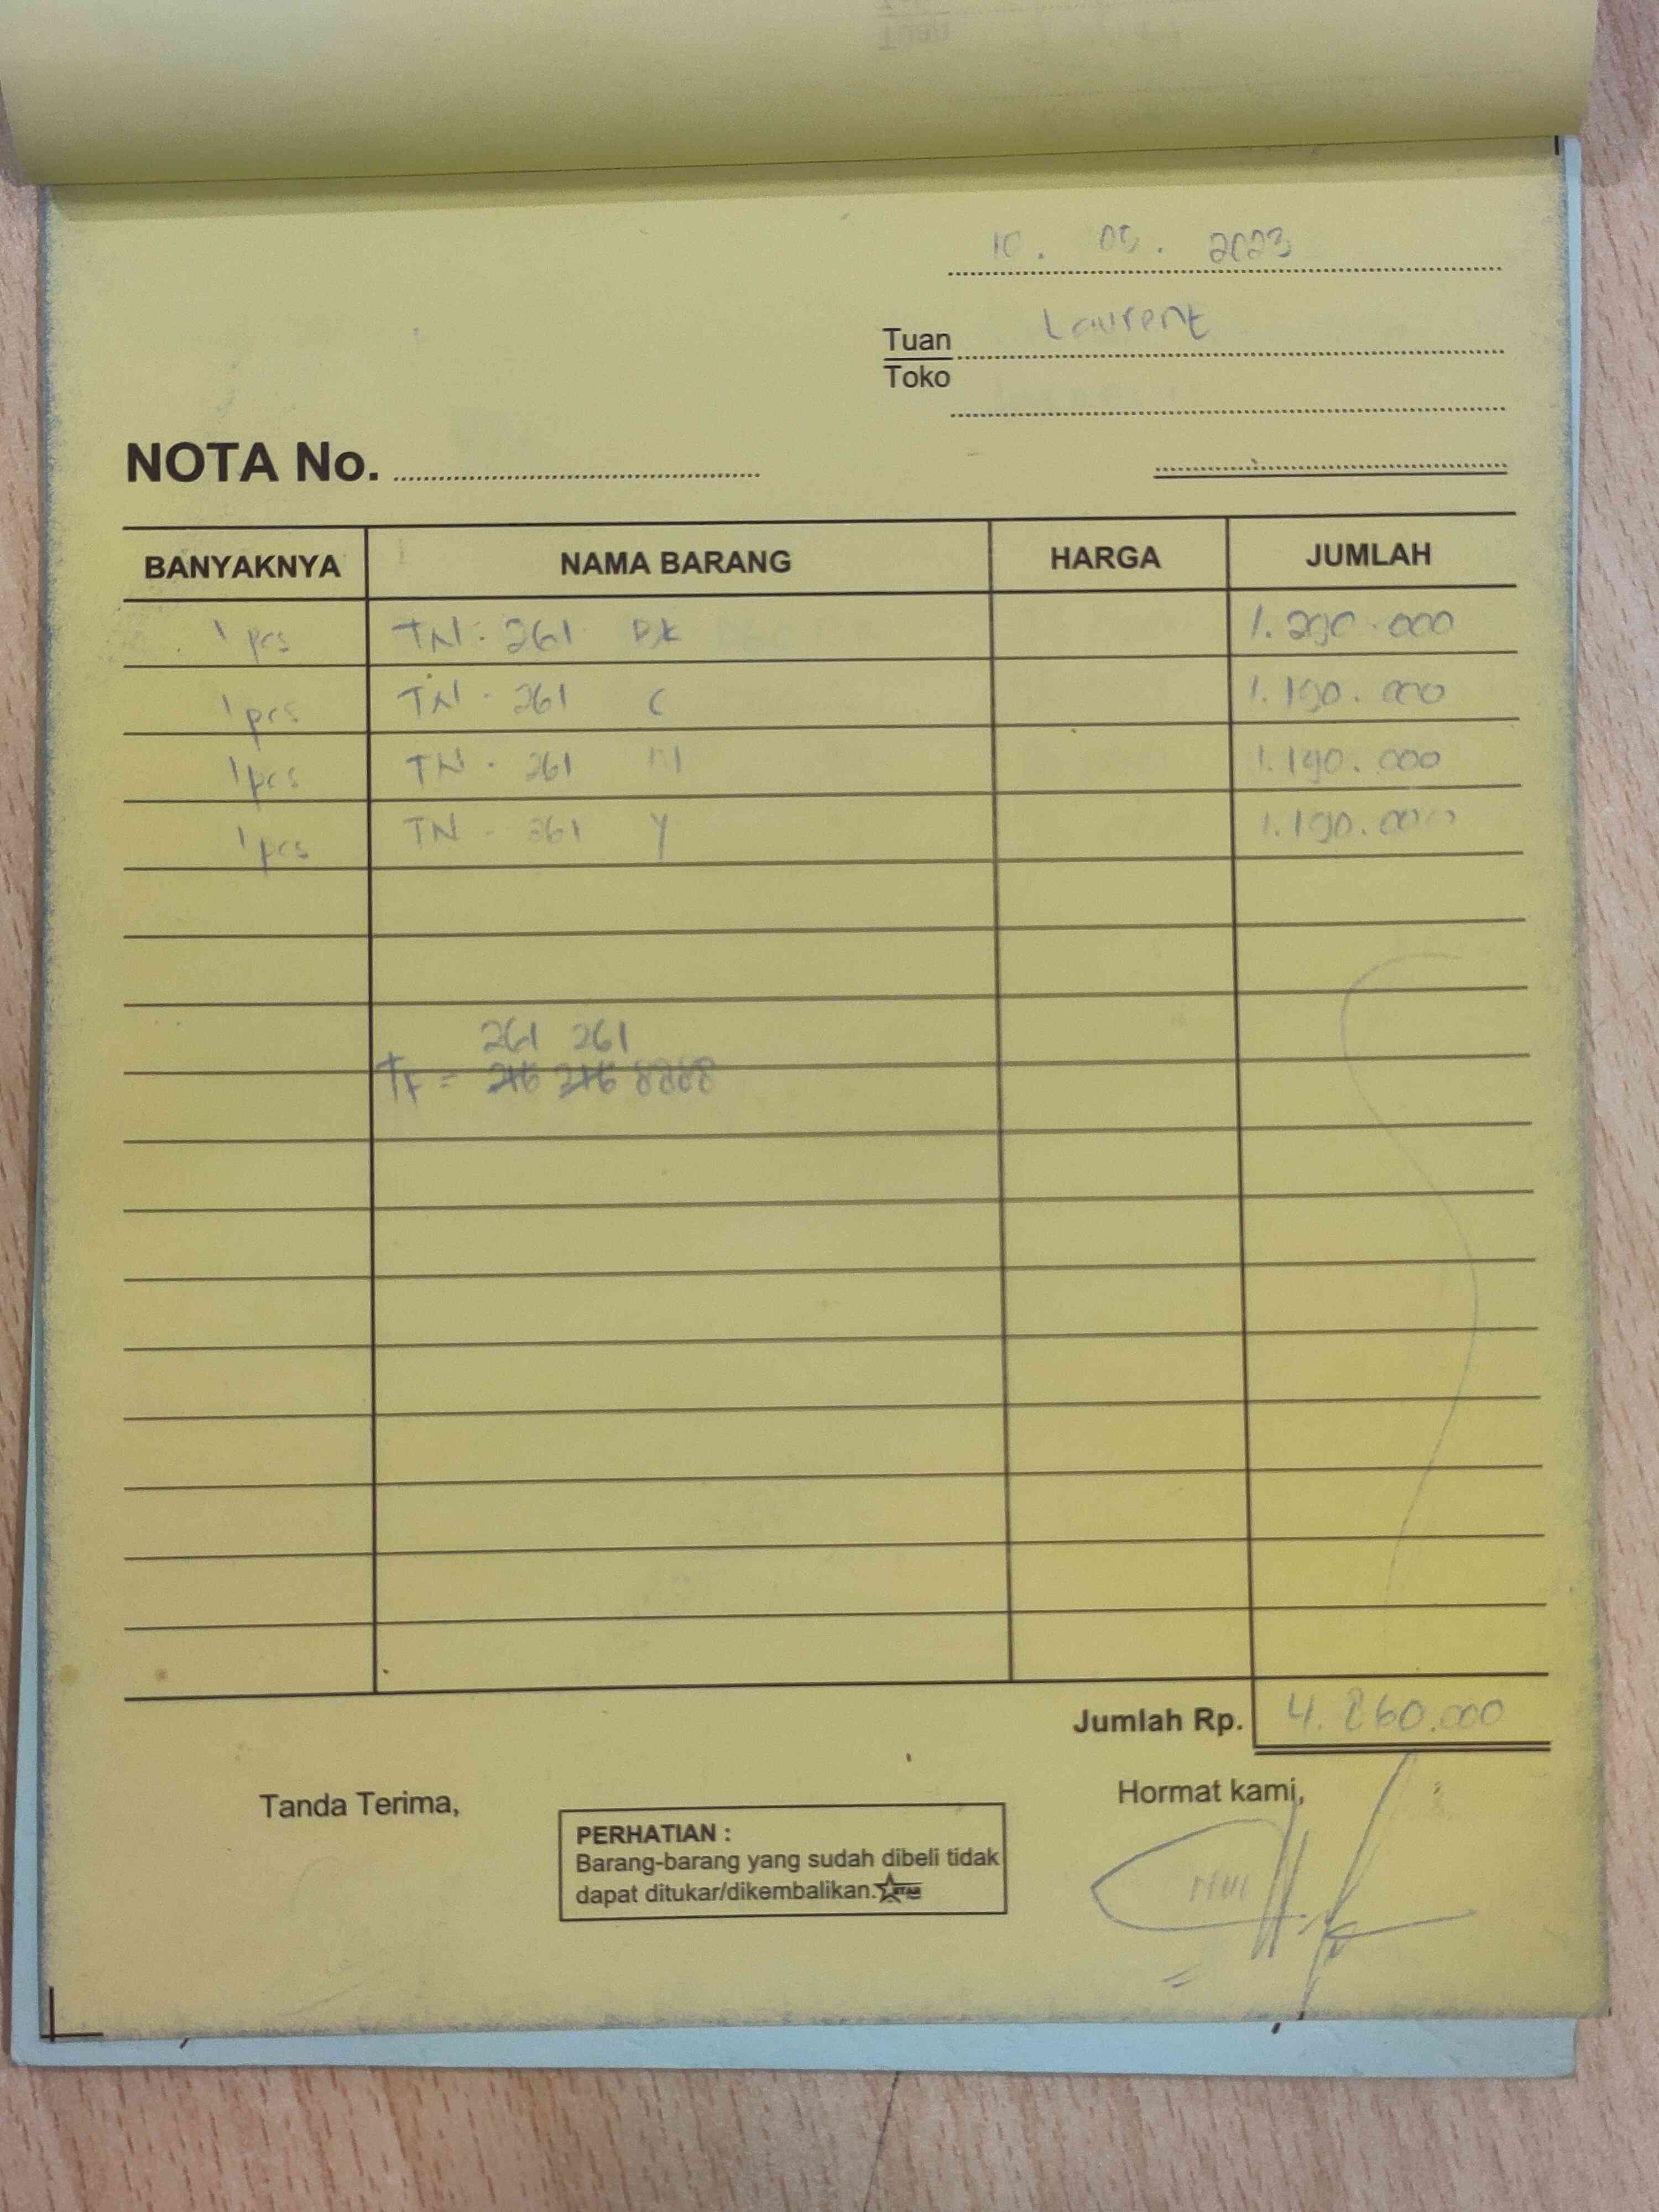 10. 05. 2023
Tuan Laurent
Toko
NOTA No.
BANYAKNYA NAMA BARANG HARGA JUMLAH
1 pcs TN - 261 BK 1.290.000
1 pcs TN - 261 C 1.190.000
1 pcs TN - 261 M 1.190.000
1 pcs TN - 261 Y 1.190.000
261 261
TF = 216 216 8888
Jumlah Rp. 4.860.000
Tanda Terima, Hormat kami,
PERHATIAN :
Barang-barang yang sudah dibeli tidak
dapat ditukar/dikembalikan. STAR